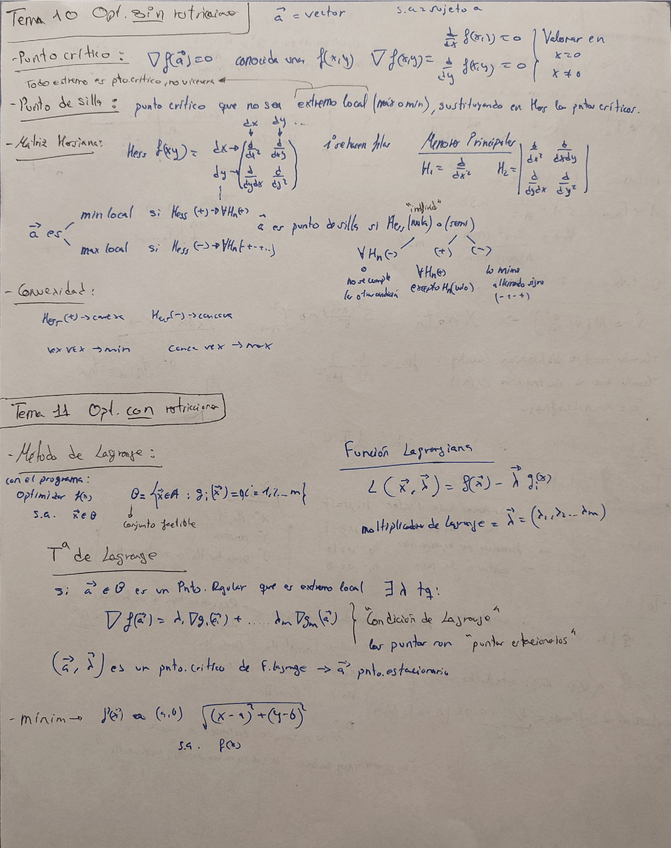 Tema 10 Opt. sin restricciones
a⃗ = vector
s.a = sujeto a
- Punto crítico: ∇f(a⃗)=0 conocida una f(x,y) ∇f(x,y)= d/dx f(x,y)=0
d/dy f(x,y)=0
Valorar en
x=0
x≠0
Todo extremo es pto crítico, no viceversa
- Punto de silla: punto crítico que no sea extremo local (máx o mín), sustituyendo en Hess los pntos críticos.
dx dy ...
- Matriz Hessiana: Hess f(xy) = dx→ d/dx² d/dxdy
dy→ d/dydx d/dy²
Menores Principales
H₁ = d/dx² H₂= d/dx² d/dxdy
d/dydx d/dy²
a⃗ es
min local si Hess (+)→∀Hn(+)
max local si Hess (-)→∀Hn[-+-...]
a⃗ es punto de silla si Hess (nula) o (semi)
"indefinida"
∀Hn(-) (+) (-)
o
no se cumple
∀Hn(+)
excepto Hn(último)
lo mismo
alternado signo
(-+-+)
- Convexidad:
Hess(+)→convexa Hess(-)→concava
vex vex → min conca vex → max
Tema 11 Opt. con restricciones
- Método de Lagrange:
con el programa:
Optimizar f(x)
s.a. x⃗∈θ
θ={x⃗∈A : gᵢ(x⃗)=gᵢ i=1,2...m}
Conjunto factible
Función Lagrangiana
L(x⃗,λ⃗) = f(x⃗) - λ⃗ gᵢ(x)
multiplicador de Lagrange = λ⃗ = (λ₁,λ₂...λm)
Tª de Lagrange
si a⃗ ∈ θ es un Pnto. Regular que es extremo local ∃λ tq:
∇f(a⃗) = λ₁∇g₁(a⃗) + .... λm∇gm(a⃗)
"Condición de Lagrange"
los puntos son "puntos estacionarios"
(a⃗,λ⃗) es un pnto. crítico de F. Lagrange → a⃗ pnto. estacionario
- mínim → f(x⃗) a (a,b) √(x-a)²+(y-b)²
s.a. f(x)